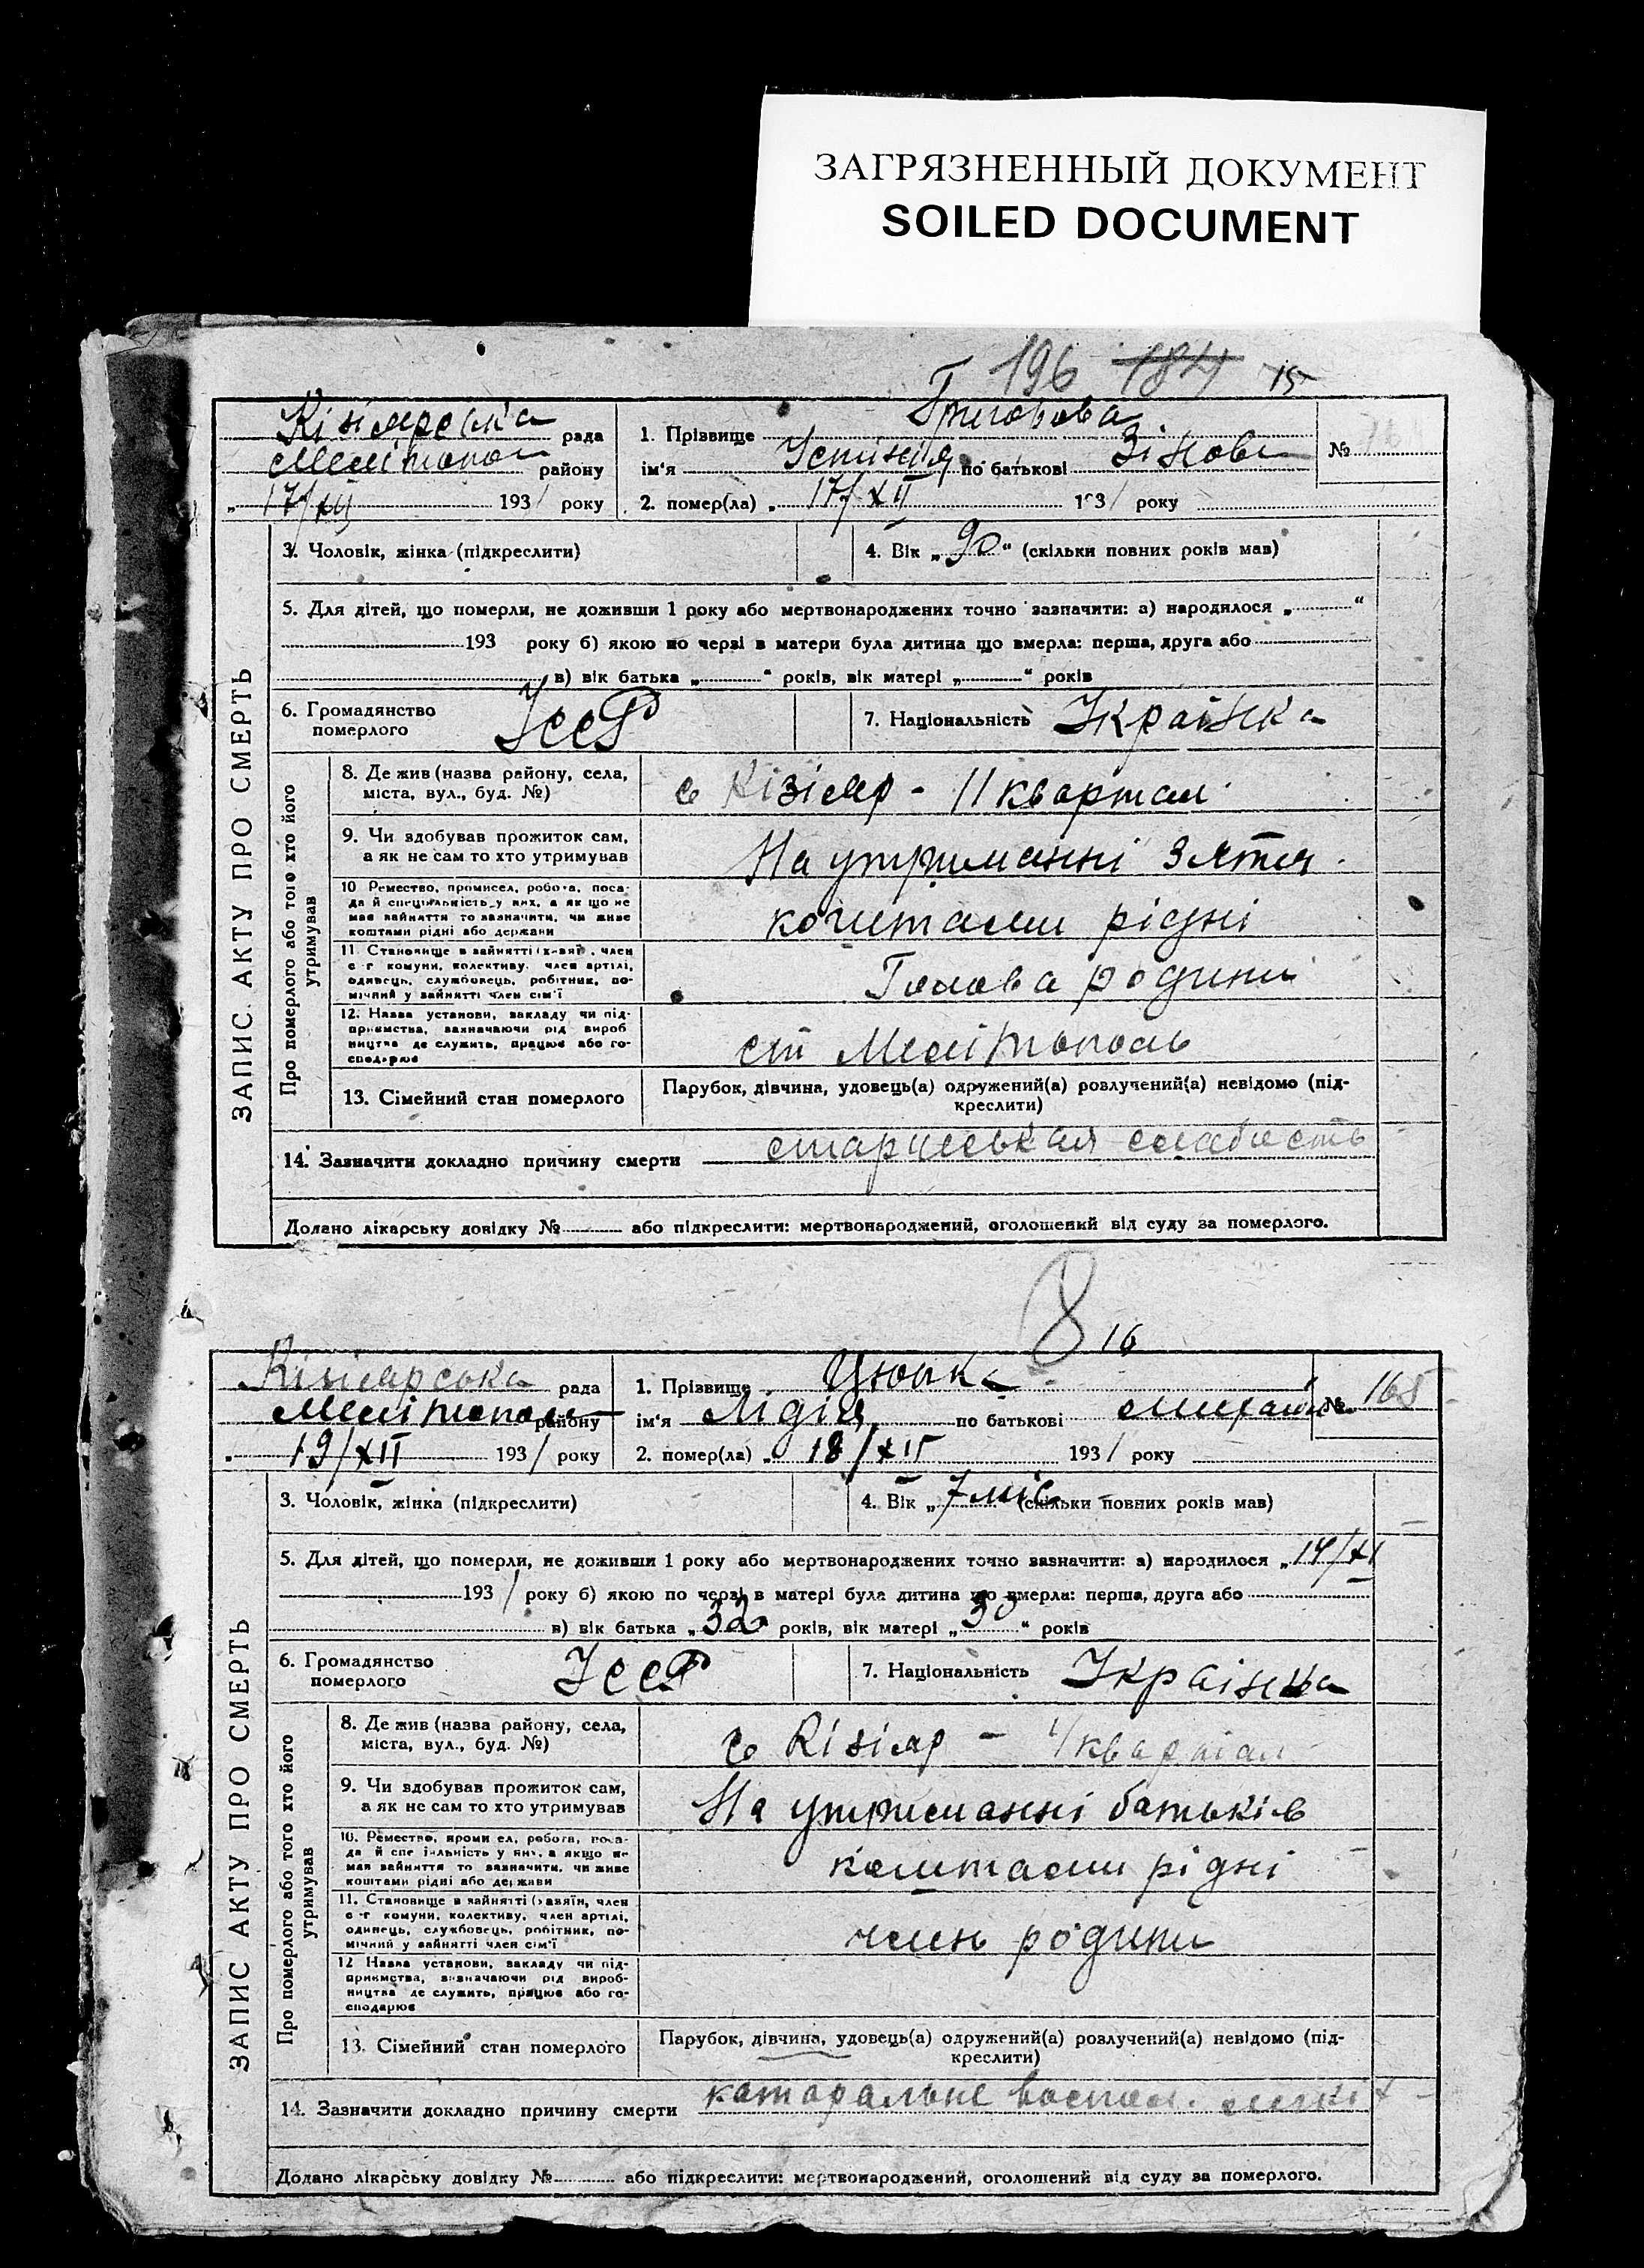 ЗАГРЯЗНЕННЫЙ ДОКУМЕНТ
SOILED DOCUMENT
196 184 15
Кізіярська рада
Мелітопол району
„ 17/XII 1931 року
1. Прізвище Григорова
ім'я Устінія по батькові Зінов
2. помер(ла) „ 17/XII 1931 року
№
ЗАПИС. АКТУ ПРО СМЕРТЬ
3. Чоловік, жінка (підкреслити)
4. Вік „90“ (скільки повних років мав)
5. Для дітей, що померли, не доживши 1 року або мертвонароджених точно зазначити: а) народилося „ “
193 року б) якою по черзі в матери була дитина що вмерла: перша, друга або
в) вік батька „ “ років, вік матері „ “ років
6. Громадянство померлого УССР
7. Національність Українка
Про померлого або того хто його утримував
8. Де жив (назва району, села,
міста, вул., буд. №)
с Кізіяр - 11 квартал
9. Чи здобував прожиток сам,
а як не сам то хто утримував
На утриманні зятя
10 Ремество, промисел, робота, поса-
да й спеціяльність у них, а як що не
має зайняття то зазначити, чи живе
коштами рідні або держави
коштами рідні
11 Становище в зайнятті член
с-г комуни, колективу, член артілі,
одинець, службовець, робітник, по-
мічний у зайнятті член сім'ї
Голова родини
12. Назва установи, закладу чи під-
приємства, зазначаючи рід вироб
ництва де служить, працює або го-
сподарює
ст Мелітополь
13. Сімейний стан померлого
Парубок, дівчина, удовець(а) одружений(а) розлучений(а) невідомо (під-
креслити)
14. Зазначити докладно причину смерти старческая слабость
Додано лікарську довідку № або підкреслити: мертвонароджений, оголошений від суду за померлого.
8 16
Кізіярська рада
Мелітопол району
„ 19/XII 1931 року
1. Прізвище Цюпка
ім'я Лідія по батькові
2. помер(ла) „ 18/XII 1931 року
№ 165
ЗАПИС АКТУ ПРО СМЕРТЬ
3. Чоловік, жінка (підкреслити)
4. Вік „7 міс (скільки повних років мав)
5. Для дітей, що померли, не доживши 1 року або мертвонароджених точно зазначити: а) народилося „14/XI
1931 року б) якою по черзі в матері була дитина що вмерла: перша, друга або
в) вік батька „32 років, вік матері „30“ років
6. Громадянство померлого УССР
7. Національність Українка
Про померлого або того хто його утримував
8. Де жив (назва району, села,
міста, вул., буд. №)
с Кізіяр - квартал
9. Чи здобував прожиток сам,
а як не сам то хто утримував
На утриманні батьків
10. Ремество, промисел, робота, поса-
да й спеціяльність у них, а якщо не
має зайняття то зазначити, чи живе
коштами рідні або держави
коштами рідні
11. Становище в зайнятті (хазяїн, член
с-г комуни, колективу, член артілі,
одинець, службовець, робітник, по-
мічний у зайнятті член сім'ї
член родини
12 Назва установи, закладу чи під-
приємства, визначаючи рід вироб-
ництва де служить, працює або го-
сподарює
13. Сімейний стан померлого
Парубок, дівчина, удовець(а) одружений(а) розлучений(а) невідомо (під-
креслити)
14. Зазначити докладно причину смерти катаральне воспал. легкіх
Додано лікарську довідку № або підкреслити: мертвонароджений, оголошений від суду за померлого.